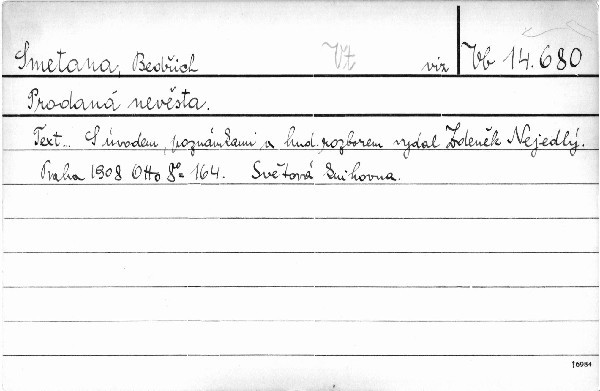 Smetana, Bedřich Vž viz Vb 14.680
Prodaná nevěsta.
Text... S úvodem, poznámkami a hud. rozborem vydal Zdeněk Nejedlý.
Praha 1908 Otto 8° 164. Světová knihovna.
16984